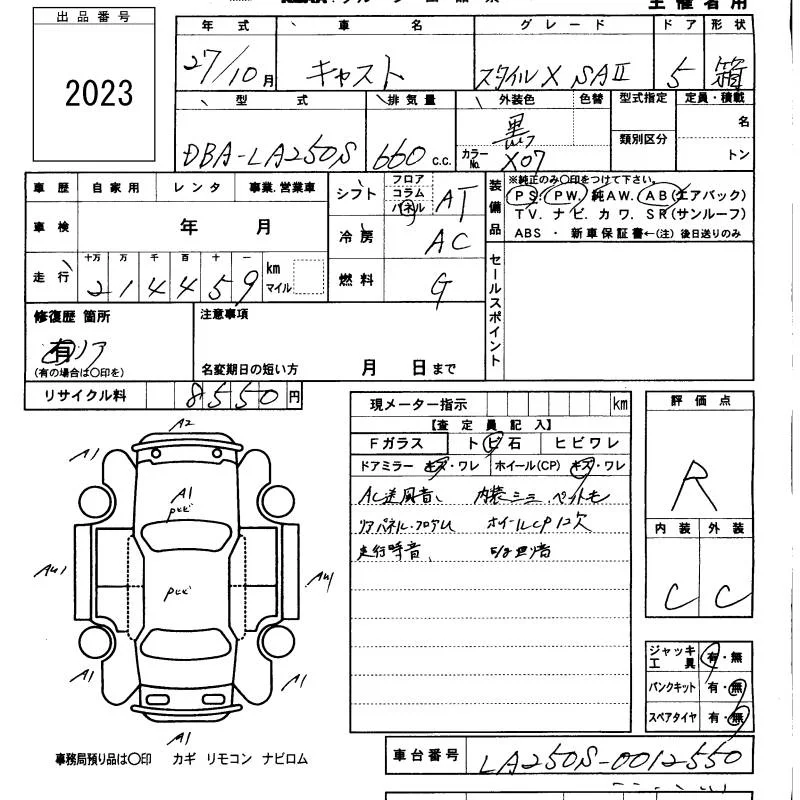 主催者用
出品番号
2023
年式 車名 グレード ドア 形状
27/10月 キャスト スタイルX SAⅡ 5 箱
型式 排気量 外装色 色替 型式指定 定員・積載
DBA-LA250S 660 c.c. 黒 カラーNo. X07 類別区分 名 トン
車歴 自家用 レンタ 事業.営業車
シフト フロア コラム パネル AT
装備品
※純正のみ〇印をつけて下さい。
PS. PW. 純AW. AB(エアバック)
TV. ナビ. カワ. SR(サンルーフ)
ABS ・ 新車保証書←(注) 後日送りのみ
車検 年 月
冷房 AC
走行 十万 万 千 百 十 一 km マイル
214459
燃料 G
セールスポイント
修復歴 箇所 注意事項
有 リア
(有の場合は〇印を) 名変期日の短い方 月 日まで
リサイクル料 8550円
現メーター指示 km
【査定員記入】
Fガラス トビ石 ヒビワレ
ドアミラー キズ・ワレ ホイール(CP) キズ・ワレ
AC送風音、 内装シミ ペット毛
リアパネル・フロアム ホイールCP1欠
走行時音、
評価点
R
内装 外装
C C
A2
A1 A1
A1
ALL
A1 A1
A1
ジャッキ工具 有・無
パンクキット 有・無
スペアタイヤ 有・無
事務局預り品は〇印 カギ リモコン ナビロム
車台番号 LA250S-0012550